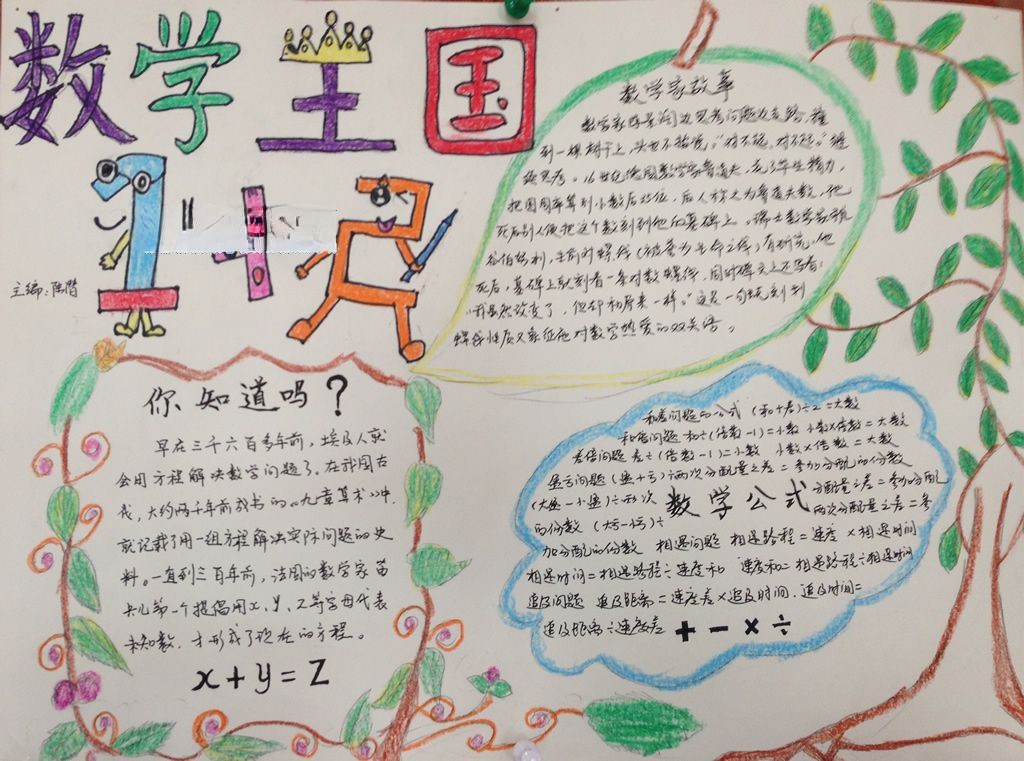 数学王国
1 4 2
主编：陆
数学家故事
数学家陈景润边思考问题边走路，撞
到一棵树干上，头也不抬说：“对不起，对不起。”继
续思考。16世纪德国数学家鲁道夫，花了毕生精力，
把圆周率算到小数后35位，后人称之为鲁道夫数，他
死后别人便把这个数刻到他的墓碑上。瑞士数学家雅
谷伯努利，生前对螺线（被誉为生命之线）有研究，他
死后，墓碑上就刻着一条对数螺线，同时碑文上还写着：
“我虽然改变了，但却和原来一样。”这是一句既刻划
螺线性质又象征他对数学热爱的双关语。
你知道吗？
早在三千六百多年前，埃及人就
会用方程解决数学问题了。在我国古
代，大约两千年前成书的《九章算术》中，
就记载了用一组方程解决实际问题的史
料。一直到三百年前，法国的数学家笛
卡儿第一个提倡用x、y、z等字母代表
未知数，才形成了现在的方程。
x+y=Z
和差问题的公式 （和+差）÷2=大数
和倍问题 和÷（倍数-1）=小数 小数×倍数=大数
差倍问题 差÷（倍数-1）=小数 小数×倍数=大数
盈亏问题（盈+亏）÷两次分配量之差=参加分配的份数
（大盈-小盈）÷两次 分配量之差=参加分配
数学公式
的份数 （大亏-小亏）÷ 两次分配量之差=参
加分配的份数 相遇问题 相遇路程=速度 ×相遇时间
相遇时间=相遇路程÷速度和 速度和=相遇路程÷相遇时间
追及问题 追及距离=速度差×追及时间，追及时间=
追及距离÷速度差 + - × ÷